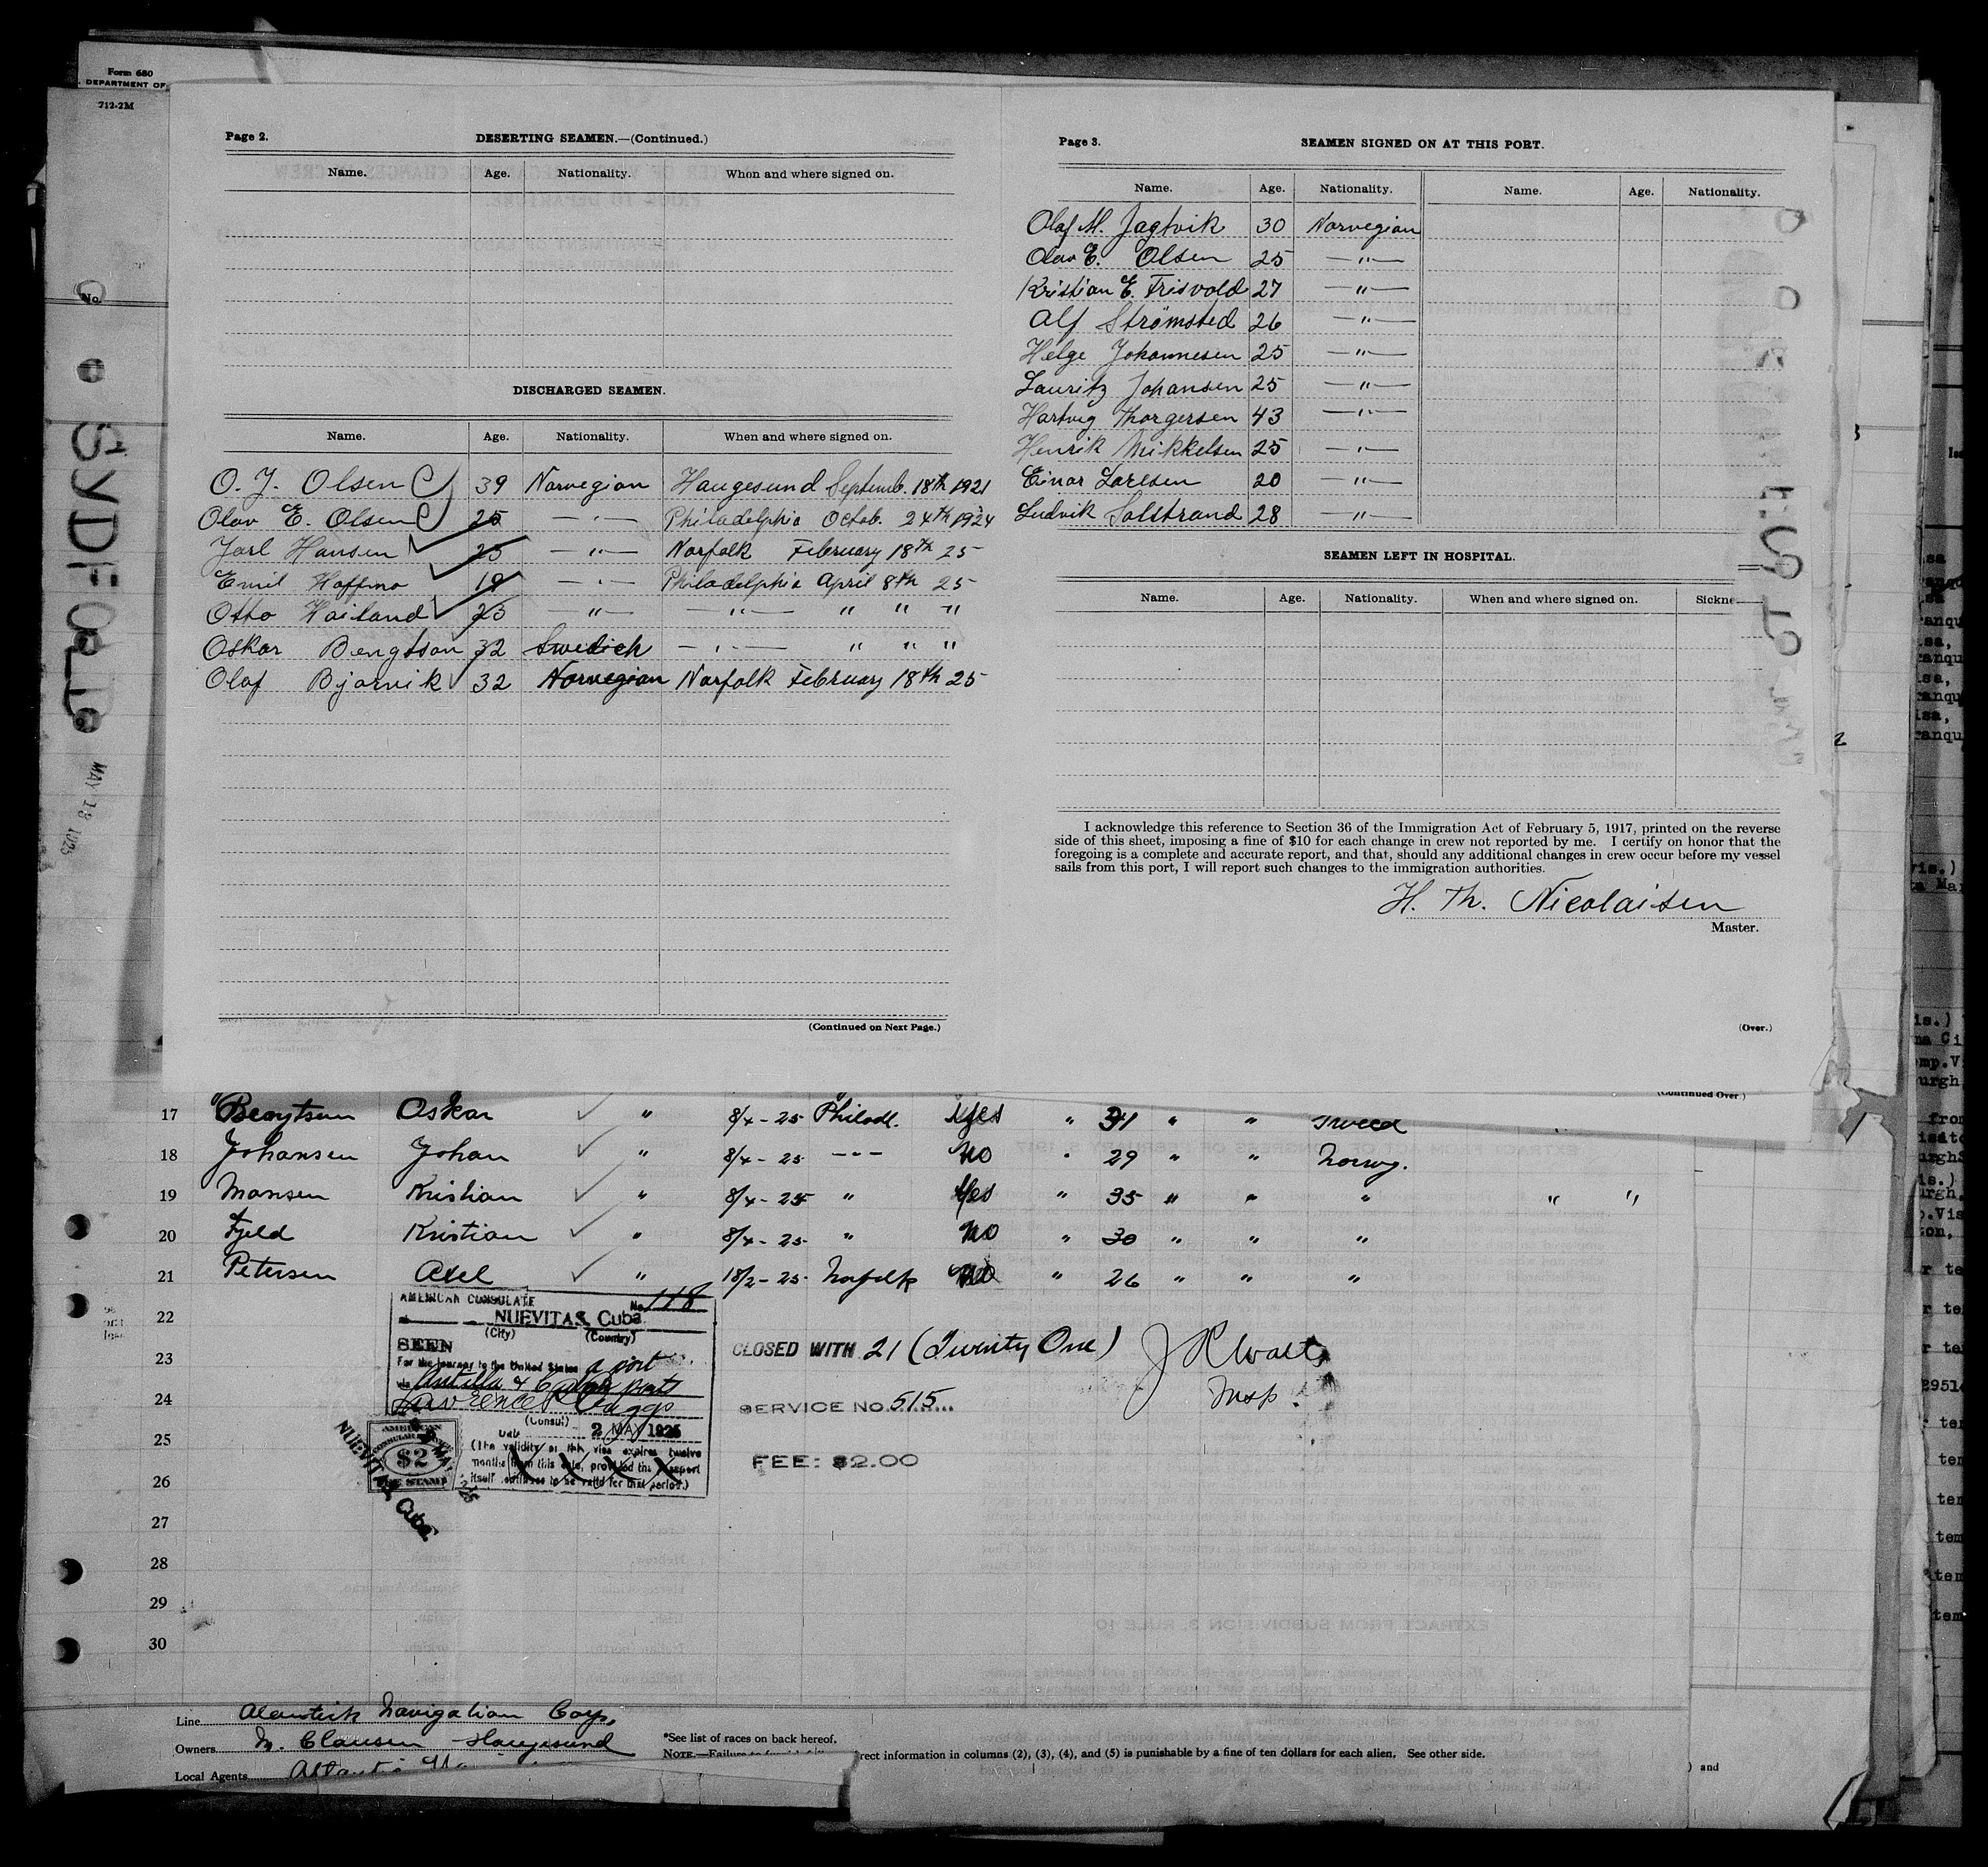 Form 680
DEPARTMENT OF
712-2M
No.
SYDFOLD
MAY 13 1925
Page 2.
DESERTING SEAMEN.—(Continued.)
Name. Age. Nationality. When and where signed on.
DISCHARGED SEAMEN.
Name. Age. Nationality. When and where signed on.
O. J. Olsen 39 Norwegian Haugesund Septemb. 18th 1921
Olav E. Olsen 25 —"— Philadelphia Octob. 24th 1924
Jarl Hansen 25 —"— Norfolk February 18th 25
Emil 19 —"— Philadelphia April 8th 25
Otto Hailand 25 —"— —"— " " "
Oskar Bengtson 32 Swedich —"— " " "
Olaf Bjørvik 32 Norwegian Norfolk February 18th 25
(Continued on Next Page.)
Page 3.
SEAMEN SIGNED ON AT THIS PORT.
Name. Age. Nationality. Name. Age. Nationality.
Olaf M. Jagtvik 30 Norwegian
Olav E. Olsen 25 —"—
Kristian E. Frisvold 27 —"—
Alf Strømsted 26 —"—
Helge Johannesen 25 —"—
Lauritz Johansen 25 —"—
Hartvig Thorgersen 43 —"—
Henrik Mikkelsen 25 —"—
Einar Larlsen 20 —"—
Ludvik Solstrand 28 —"—
SEAMEN LEFT IN HOSPITAL.
Name. Age. Nationality. When and where signed on. Sickne
I acknowledge this reference to Section 36 of the Immigration Act of February 5, 1917, printed on the reverse
side of this sheet, imposing a fine of $10 for each change in crew not reported by me. I certify on honor that the
foregoing is a complete and accurate report, and that, should any additional changes in crew occur before my vessel
sails from this port, I will report such changes to the immigration authorities.
H. Th. Nicolaisen
Master.
(Over.)
(Continued Over.)
17 Bengtsen Oskar " 8/4-25 Philadl. Yes " 31 " " Sweed
18 Johansen Johan " 8/4-25 --- No " 29 " " Norwg.
19 Monsen Kristian " 8/4-25 " Yes " 35 " " " " "
20 Fjeld Kristian " 8/4-25 " No " 30 " " "
21 Petersen Axel " 18/2-25 Norfolk No " 26 " " "
22
23
24
25
26
27
28
29
30
AMERICAN CONSULATE No. 118
NUEVITAS, Cuba
(City) (Country)
SEEN
For the journey to the United States a port
via Antilla & Cuban ports
(Consul)
Date 2 MAY 1925
(The validity of this visa expires twelve
months from this date, provided the passport
itself continues to be valid for that period.)
AMERICAN
CONSULAR SERVICE
$2
FEE STAMP
NUEVITAS, Cuba
CLOSED WITH 21 (Twenty One)
Insp.
SERVICE NO. 515
FEE: $2.00
Line Atlantick Navigation Corp.
Owners M. Clausen Haugesund
Local Agents
*See list of races on back hereof.
NOTE.—Failure to
rect information in columns (2), (3), (4), and (5) is punishable by a fine of ten dollars for each alien. See other side.
) and